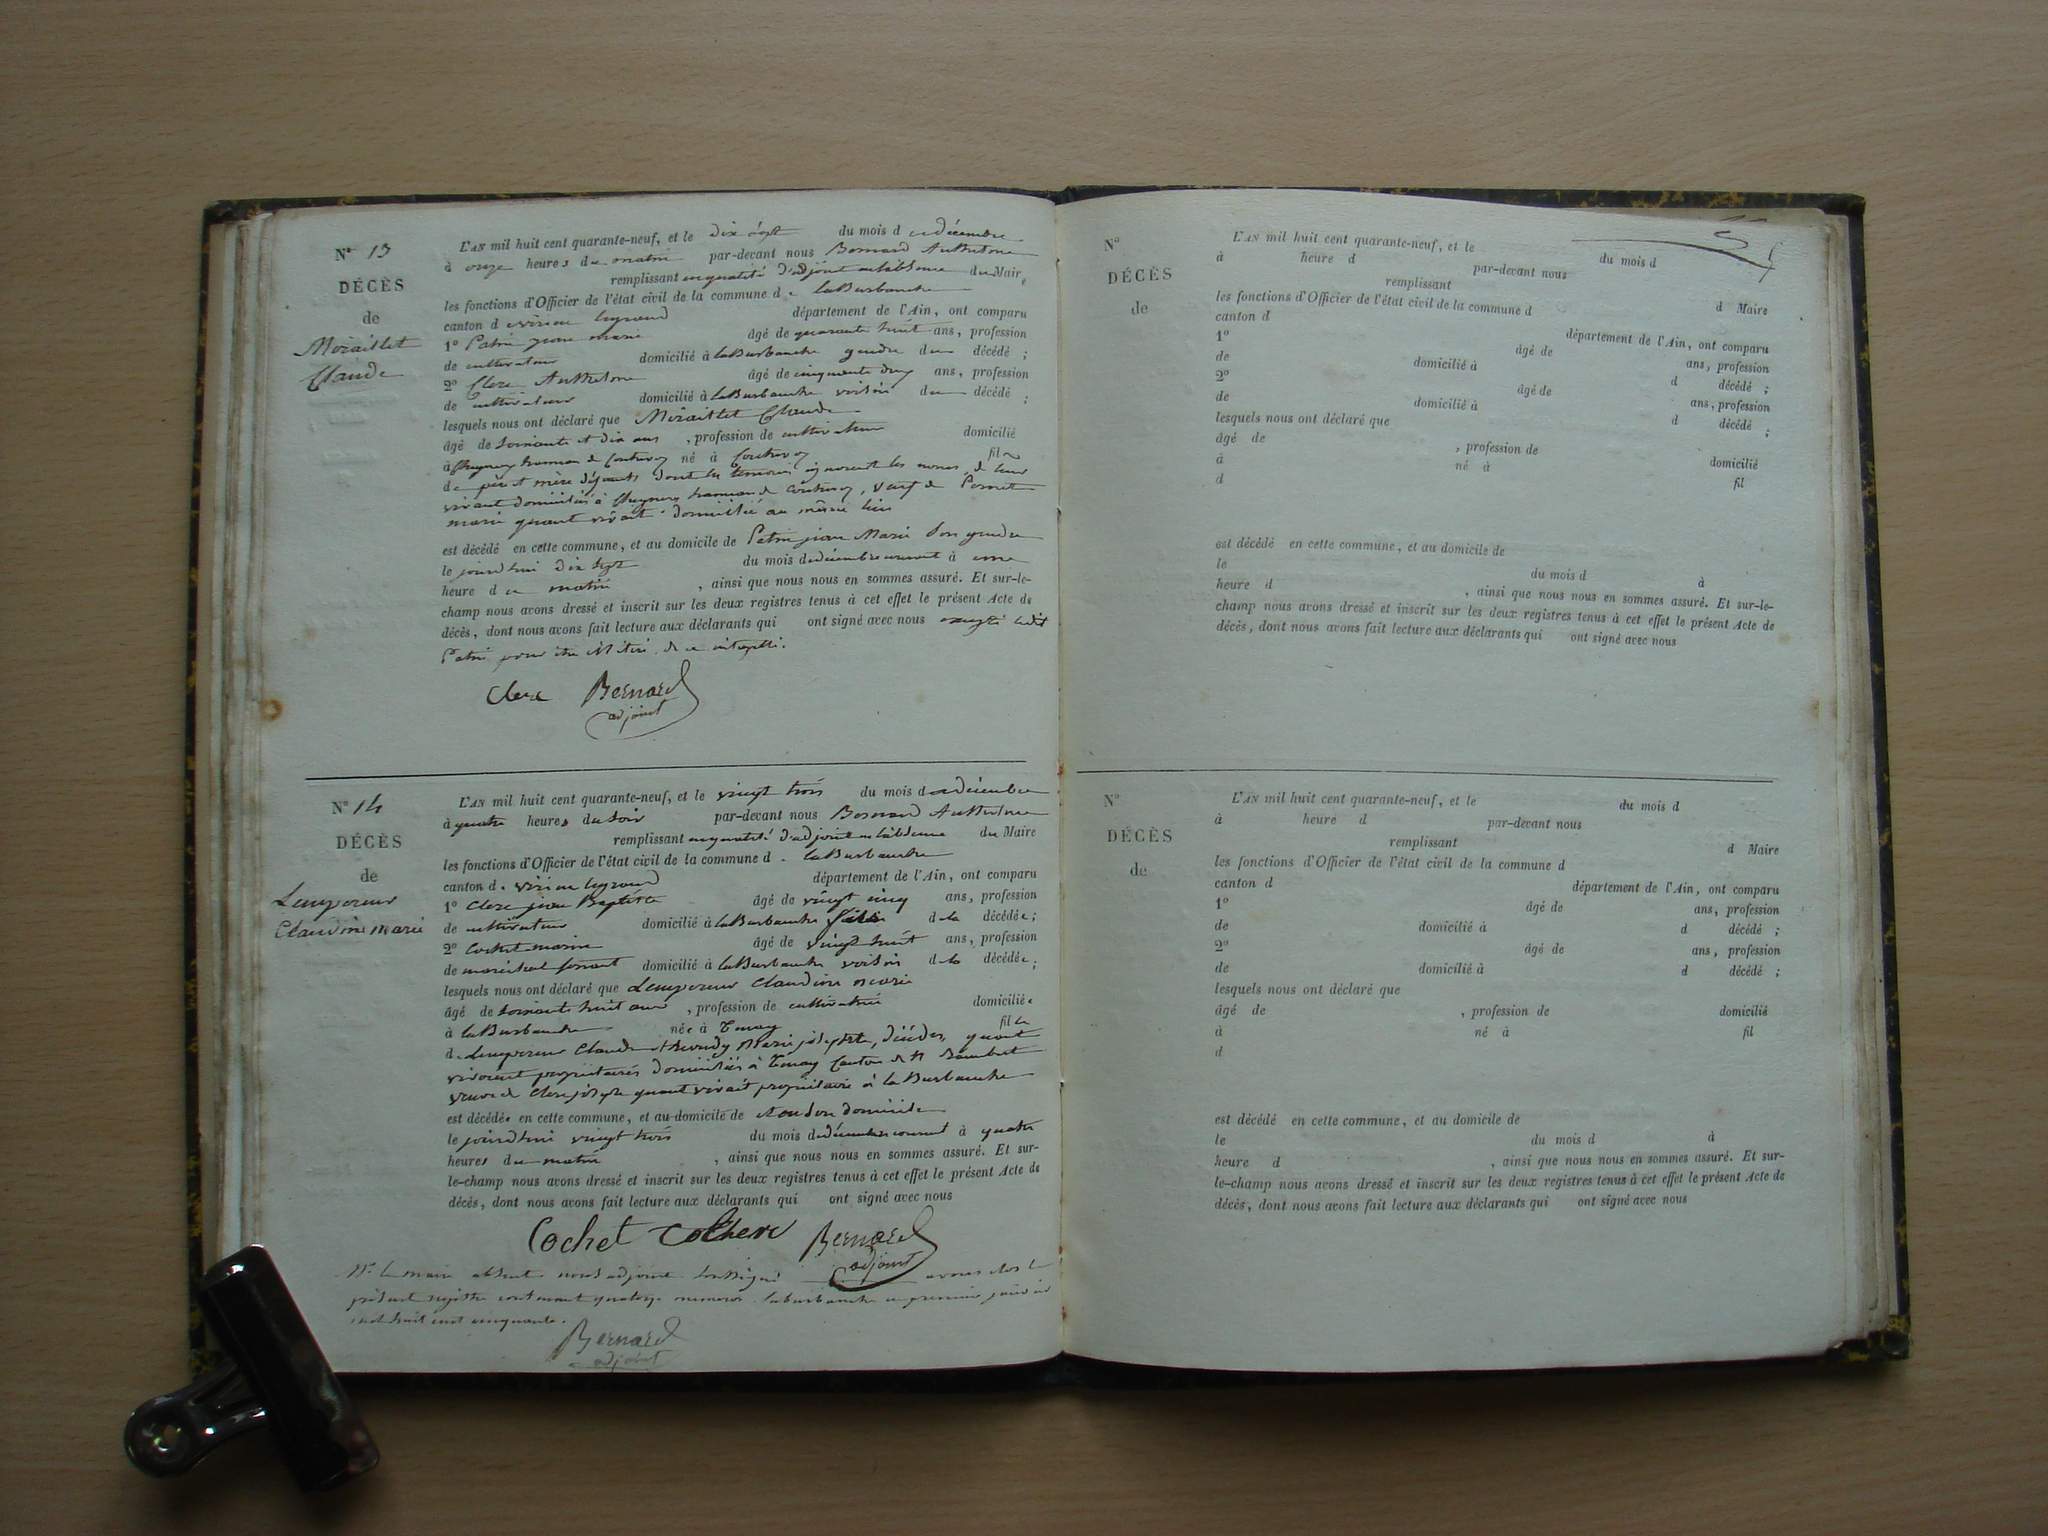 N° 13
DÉCÈS
de
Moraillet
Claude
L'AN mil huit cent quarante-neuf, et le dix sept du mois de décembre
à onze heures du matin par-devant nous Bernard Anthelme
remplissant en qualité d'adjoint en l'absence du Maire
les fonctions d'Officier de l'état civil de la commune de laBurbanche
canton de virieu legrand département de l'Ain, ont comparu
1° Patin jean marie âgé de quarante huit ans, profession
de cultivateur domicilié à laBurbanche gendre du décédé ;
2° Clerc Anthelme âgé de cinquante ans, profession
de cultivateur domicilié à laBurbanche voisin du décédé ;
lesquels nous ont déclaré que Moraillet Claude
âgé de soixante et dix ans , profession de cultivateur domicilié
à hameau de né à fils
de père et mère défunts dont les témoins ignorent les noms, de leur
vivant domiciliés à hameau de , veuf de
marie quant vivait domiciliée au même lieu
est décédé en cette commune, et au domicile de Patin jean Marie son gendre
le jourd'hui dix sept du mois de décembre courant à une
heure du matin , ainsi que nous nous en sommes assuré. Et sur-le-
champ nous avons dressé et inscrit sur les deux registres tenus à cet effet le présent Acte de
décès, dont nous avons fait lecture aux déclarants qui ont signé avec nous excepté ledit
Patin pour être illitéré de ce interpellé.
Clerc Bernard
adjoint
N° 14
DÉCÈS
de
Lempereur
Claudine marie
L'AN mil huit cent quarante-neuf, et le vingt trois du mois de décembre
à quatre heures du soir par-devant nous Bernard Anthelme
remplissant en qualité d'adjoint en l'absence du Maire
les fonctions d'Officier de l'état civil de la commune de laBurbanche
canton de virieu legrand département de l'Ain, ont comparu
1° Clerc jean Baptiste âgé de vingt cinq ans, profession
de cultivateur domicilié à laBurbanche fils de la décédée ;
2° Cochet marin âgé de vingt huit ans, profession
de maréchal ferrant domicilié à laBurbanche voisin de la décédée ;
lesquels nous ont déclaré que Lempereur Claudine marie
âgé de soixante huit ans , profession de cultivatrice domiciliée
à la Burbanche née à Tenay fille
de Lempereur Claude et Marie josephte, décédés, quant
vivoient propriétaires domiciliés à Tenay Canton de St Rambert
veuve de Clerc joseph quant vivait propriétaire à la Burbanche
est décédée en cette commune, et au domicile de et en son domicile
le jourd'hui vingt trois du mois de décembre courant à quatre
heures du matin , ainsi que nous nous en sommes assuré. Et sur-
le-champ nous avons dressé et inscrit sur les deux registres tenus à cet effet le présent Acte de
décès, dont nous avons fait lecture aux déclarants qui ont signé avec nous
Cochet Bernard
adjoint
Mr le maire absent nous adjoint soussigné avons clos le
présent registre contenant quatorze numéros laburbanche le premier janvier
mil huit cent cinquante.
Bernard
adjoint
N°
DÉCÈS
de
L'AN mil huit cent quarante-neuf, et le du mois d
à heure d par-devant nous
remplissant d Maire
les fonctions d'Officier de l'état civil de la commune d
canton d département de l'Ain, ont comparu
1° âgé de ans, profession
de domicilié à d décédé ;
2° âgé de ans, profession
de domicilié à d décédé ;
lesquels nous ont déclaré que
âgé de , profession de domicilié
à né à fil
d
est décédé en cette commune, et au domicile de
le du mois d à
heure d , ainsi que nous nous en sommes assuré. Et sur-le-
champ nous avons dressé et inscrit sur les deux registres tenus à cet effet le présent Acte de
décès, dont nous avons fait lecture aux déclarants qui ont signé avec nous
N°
DÉCÈS
de
L'AN mil huit cent quarante-neuf, et le du mois d
à heure d par-devant nous
remplissant d Maire
les fonctions d'Officier de l'état civil de la commune d
canton d département de l'Ain, ont comparu
1° âgé de ans, profession
de domicilié à d décédé ;
2° âgé de ans, profession
de domicilié à d décédé ;
lesquels nous ont déclaré que
âgé de , profession de domicilié
à né à fil
d
est décédé en cette commune, et au domicile de
le du mois d à
heure d , ainsi que nous nous en sommes assuré. Et sur-
le-champ nous avons dressé et inscrit sur les deux registres tenus à cet effet le présent Acte de
décès, dont nous avons fait lecture aux déclarants qui ont signé avec nous